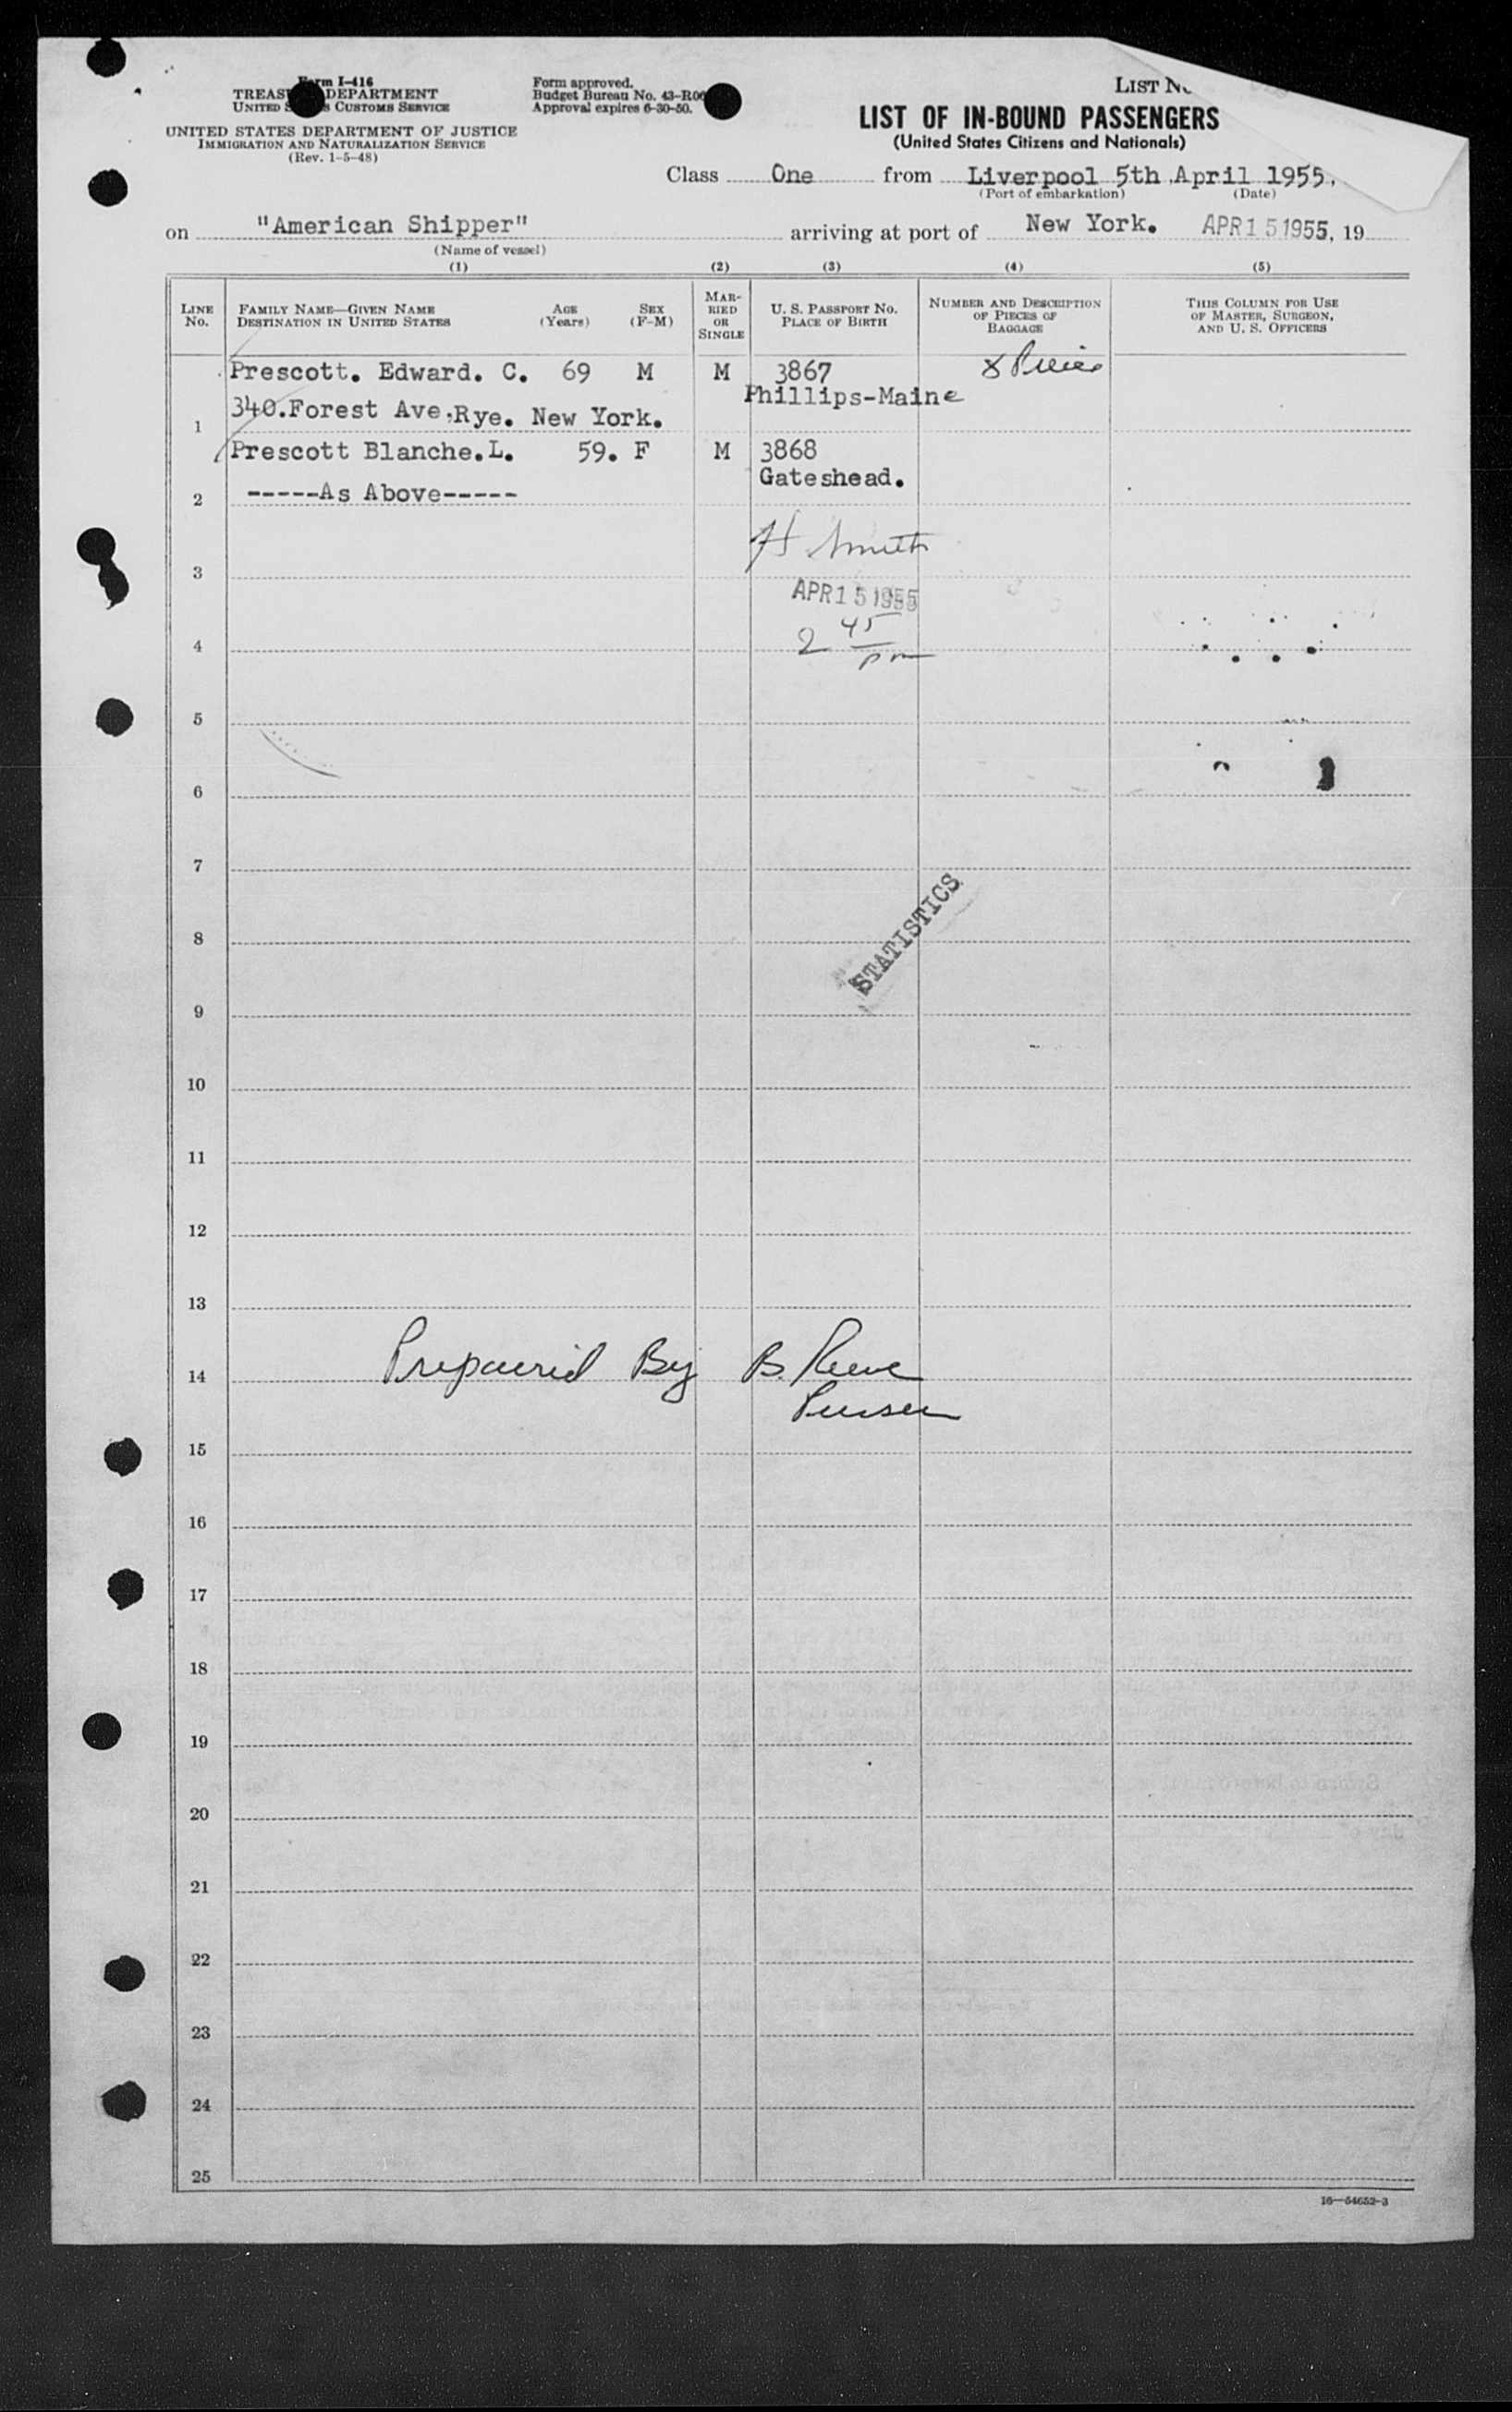 Form I-416
TREAS DEPARTMENT
UNITED S S CUSTOMS SERVICE
UNITED STATES DEPARTMENT OF JUSTICE
IMMIGRATION AND NATURALIZATION SERVICE
(Rev. 1-5-48)
Form approved.
Budget Bureau No. 43-R06
Approval expires 6-30-50.
LIST No
LIST OF IN-BOUND PASSENGERS
(United States Citizens and Nationals)
Class One from Liverpool 5th April 1955,
(Port of embarkation) (Date)
on "American Shipper" arriving at port of New York. APR 15 1955, 19
(Name of vessel)
(1) (2) (3) (4) (5)
LINE No. FAMILY NAME—GIVEN NAME DESTINATION IN UNITED STATES AGE (Years) SEX (F-M) MARRIED OR SINGLE U. S. PASSPORT NO. PLACE OF BIRTH NUMBER AND DESCRIPTION OF PIECES OF BAGGAGE THIS COLUMN FOR USE OF MASTER, SURGEON, AND U. S. OFFICERS
Prescott. Edward. C. 69 M M 3867 8 Pieces
Phillips-Maine
1 340.Forest Ave,Rye. New York.
Prescott Blanche.L. 59. F M 3868
Gateshead.
2 -----As Above-----
H Smith
3
APR 15 1955
4 2 45 pm
5
6
7
8
STATISTICS
9
10
11
12
13
14 Prepaired By B. Reeve
Purser
15
16
17
18
19
20
21
22
23
24
25
16—54652-3